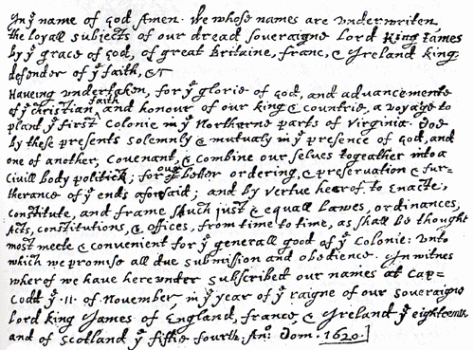 In yͤ name of god Amen. We whose names are underwriten,
the loyall subjects of our dread soveraigne Lord King James
by yͤ grace of god, of great Britaine, franc, & Ireland king,
defender of yͤ faith, &c
Haveing undertaken, for yͤ glorie of god, and advancemente
of yͤ christian faith and honour of our king & countrie, a voyage to
plant yͤ first colonie in yͤ Northerne parts of Virginia. Doe
by these presents solemnly & mutualy in yͤ presence of god, and
one of another, covenant, & combine our selves togeather into a
civill body politick; for our better ordering, & preservation & fur=
therance of yͤ ends aforesaid; and by vertue hearof to enacte,
constitute, and frame shuch just & equall lawes, ordinances,
Acts, constitutions, & offices, from time to time, as shall be thought
most meete & convenient for yͤ generall good of yͤ Colonie: unto
which we promise all due submission and obedience. In witnes
wherof we have hereunder subscribed our names at Cap=
Codd yͤ ·11· of November, in yͤ year of yͤ raigne of our soveraigne
Lord king James of England, france, & Ireland yͤ eighteenth
and of Scotland yͤ fiftie fourth. Anº: Dom. 1620.]